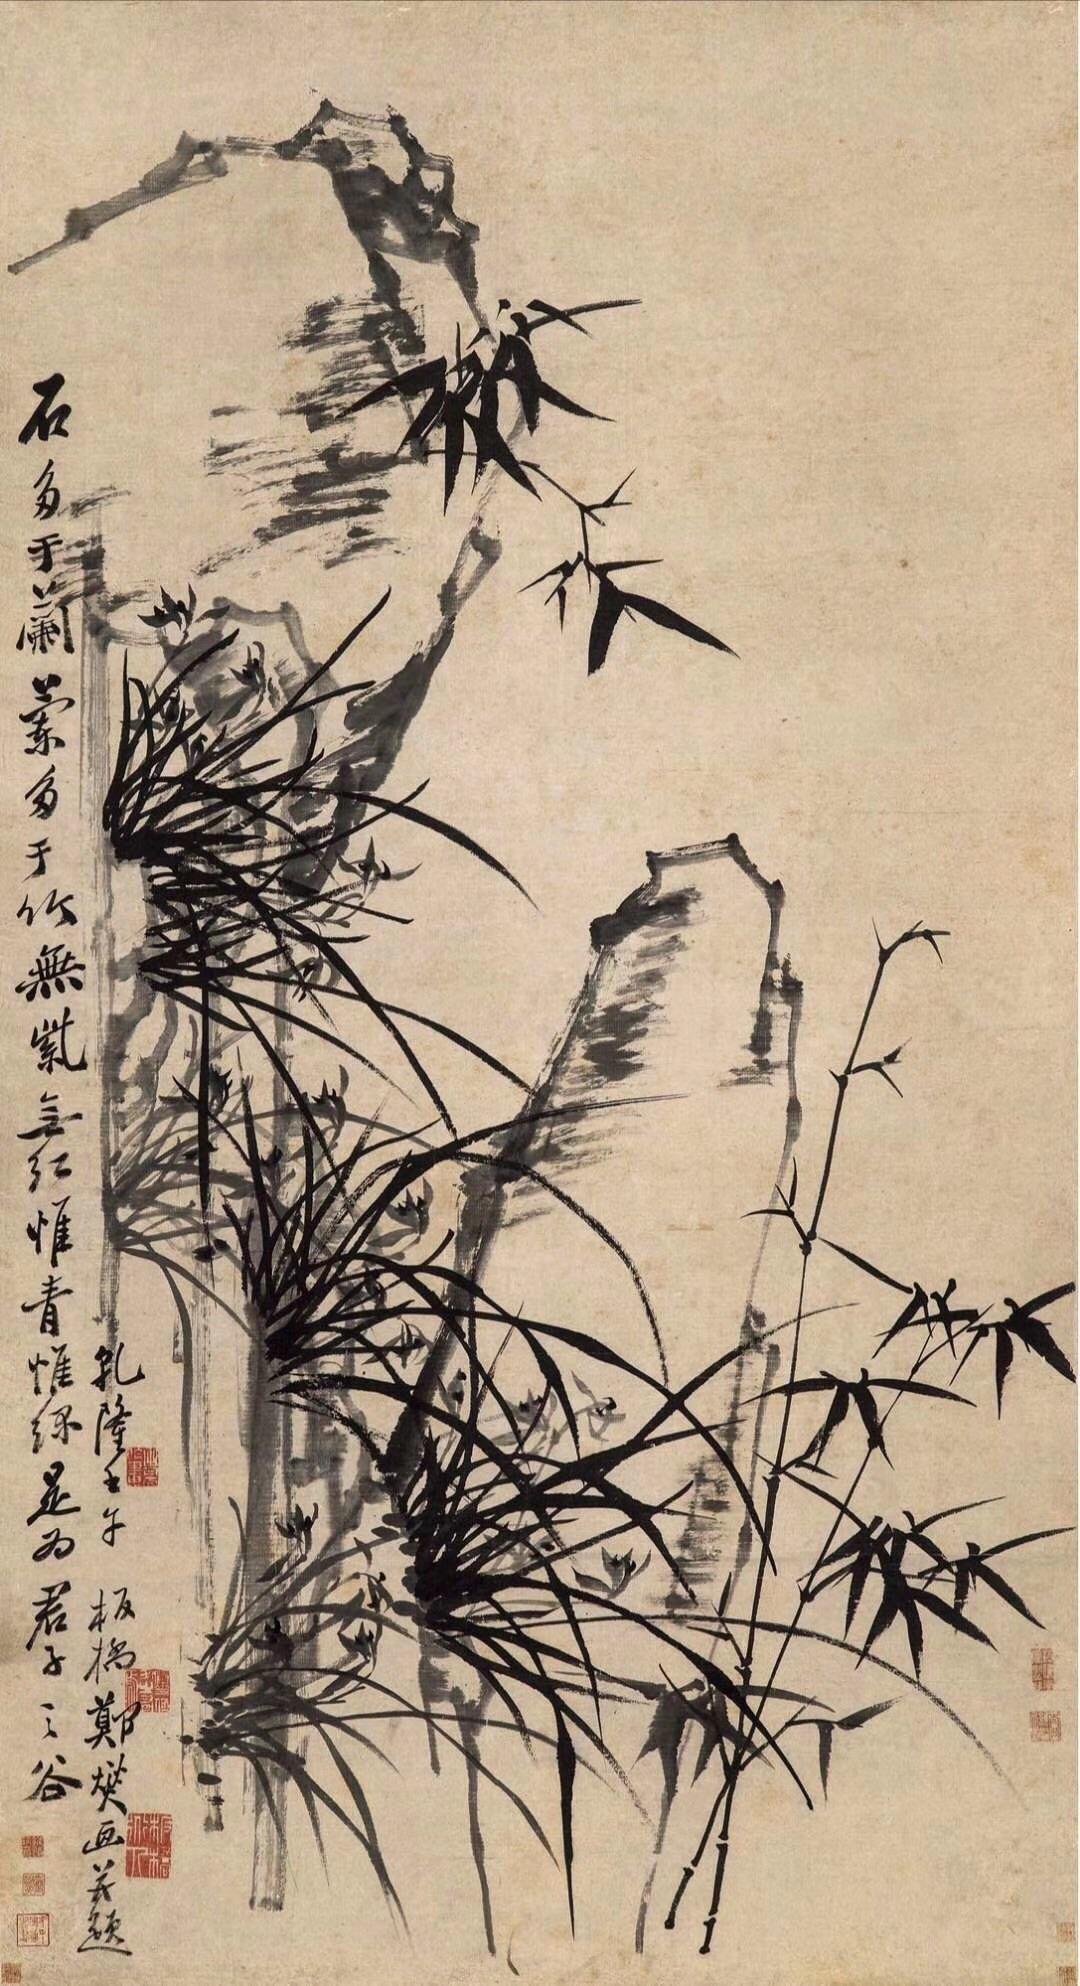 石多于蘭蘭多于竹無紫無紅惟青惟綠是為君子之谷
乾隆壬午
板橋鄭燮画并題